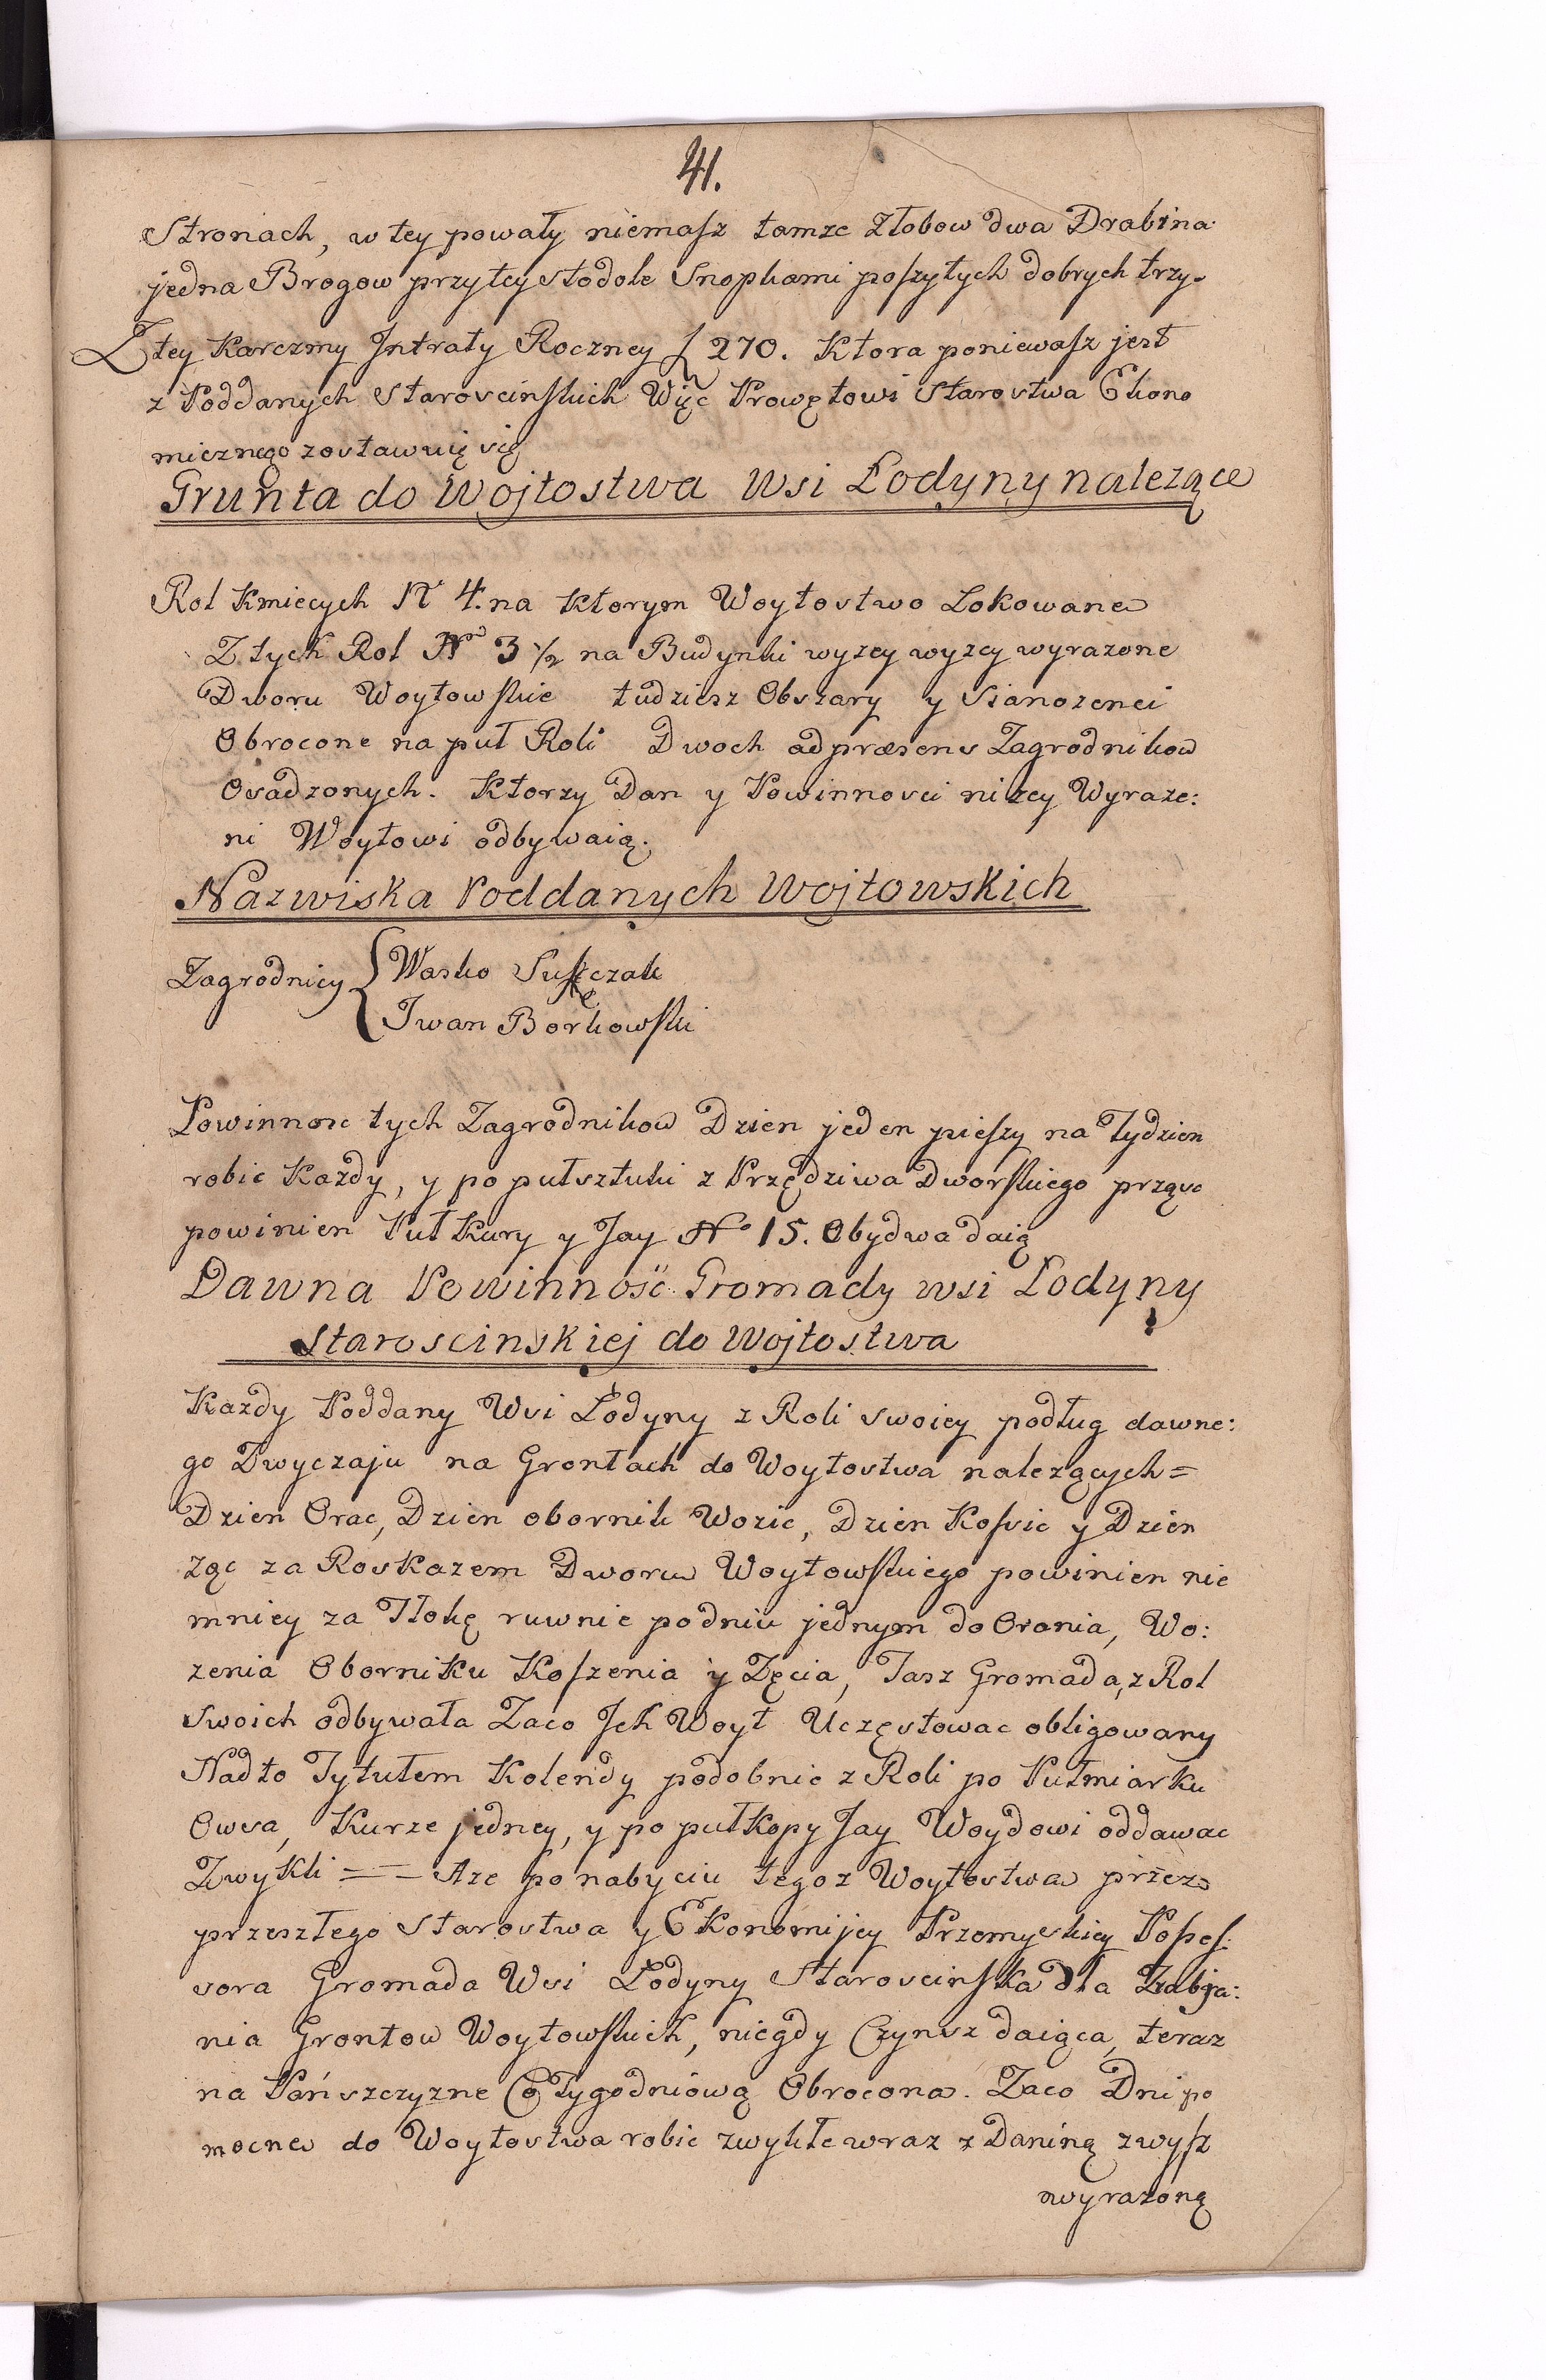 41.
Stronach, w tey powały niemasz tamze Złobow dwa Drabina
jedna Brogow przy tey stodole Snopkami poszytych dobrych trzy.
Z tey Karczmy Jntraty Roczney f 270. Ktora poniewasz jest
z Poddanych Staroscinskich Więc Prowętowi Starostwa Ekono
micznego zostawuię się
Grunta do Wojtostwa Wsi Łodyny nalezące
Rol Kmiecych N 4. na Ktorym Woytostwo Lokowane
Z tych Rol No 3 1/2 na Budynki wyzey wyzey wyrazone
Dworu Woytowskie tudziesz Obszary y Sianozenci
Obrocone na puł Roli Dwoch ad præsens Zagrodnikow
Osadzonych. Ktorzy Dan y Powinnosci nizey Wyraze:
ni Woytowi odbywaią.
Nazwiska Poddanych Wojtowskich
Zagrodnicy { Wasko
Iwan Borkowski
Powinnosc tych Zagrodnikow Dzien jeden pieszy na Tydzien
robic Kazdy, y po pułsztuki z Przędziwa Dworskiego prząsc
powinien Puł Kury y Jay No 15. Obydwa daią
Dawna Powinność Gromady wsi Łodyny
Staroscinskiej do Wojtostwa
Kazdy Poddany Wsi Łodyny z Roli swoiey podług dawne:
go Zwyczaju na Grontach do Woytostwa nalezących =
Dzien Orac, Dzien obornik Wozic, Dzien Kossic y Dzien
ząc za Roskazem Dworu Woytowskiego powinien nie
mniey za Tłokę ruwnie podniu jednym do Orania, Wo:
zenia Oborniku Koszenia y Zęcia, Tasz Gromada, z Rol
swoich odbywała Zaco Jch Woyt Uczęstowac obligowany
Nadto Tytułem Kolendy podobnie z Roli po Pułmiarku
Owsa, Kurze jedney, y po pułkopy Jay Woydowi oddawac
Zwykli = = Aze po nabyciu tegoz Woytostwa przez
przeszłego Starostwa y Ekonomijey Przemyskiey Posses:
sora Gromada Wsi Łodyny Staroscinska dla
nia Grontow Woytowskich, niegdy Czynsz daiąca, teraz
na Pańszczyzne Co Tygodniową Obrocona. Zaco Dni po
mocne do Woytostwa robic zwykłe wraz z Daniną zwysz
wyrazoną